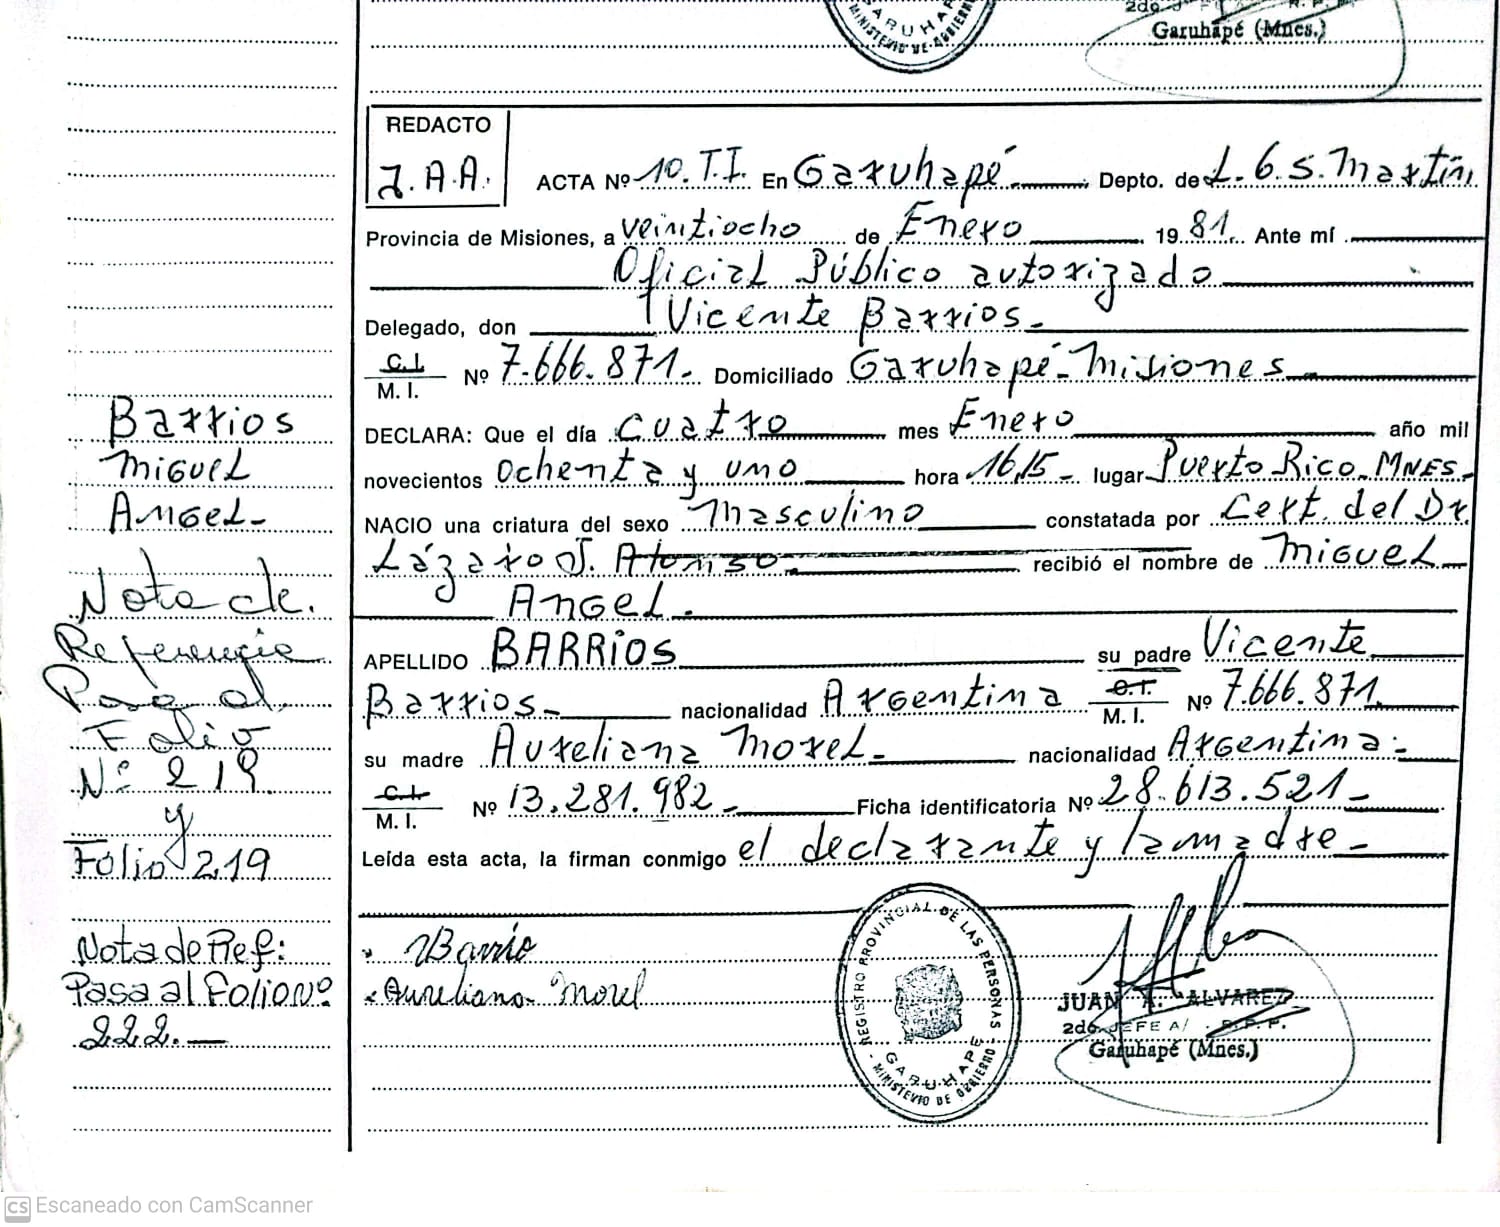 GARUHAPE
MINISTERIO DE GOBIERNO
Garuhapé (Mnes.)
REDACTO
J.A.A.
ACTA Nº 10.T.I. En Garuhapé Depto. de L.G.S.Martín,
Provincia de Misiones, a veintiocho de Enero 1981 Ante mí
Oficial Público autorizado
Delegado, don Vicente Barrios.
C.I. / M. I. Nº 7.666.871.- Domiciliado Garuhapé-Misiones
DECLARA: Que el día cuatro mes Enero año mil
novecientos ochenta y uno hora 16,15- lugar Puerto Rico-MNES-
NACIO una criatura del sexo masculino constatada por Cert. del Dr.
Lázaro J. Alonso recibió el nombre de MIGUEL
ANGEL.
APELLIDO BARRIOS su padre Vicente
Barrios nacionalidad Argentina C.I. / M. I. Nº 7.666.871
su madre Aureliana Morel nacionalidad Argentina.-
C.I. / M. I. Nº 13.281.982- Ficha identificatoria Nº 28.613.521-
Leída esta acta, la firman conmigo el declarante y la madre-
Barrios
Miguel
Angel-
Nota de.
Referencia
Pasa al
Folio
Nº 219
y
Folio 219
Nota de Ref:
Pasa al Folio Nº
222.-
VBarrio
Aureliana Morel
REGISTRO PROVINCIAL DE LAS PERSONAS
GARUHAPE
MINISTERIO DE GOBIERNO
JUAN A. ALVAREZ
2do. JEFE A/ R.P.P.
Garuhapé (Mnes.)
CS Escaneado con CamScanner